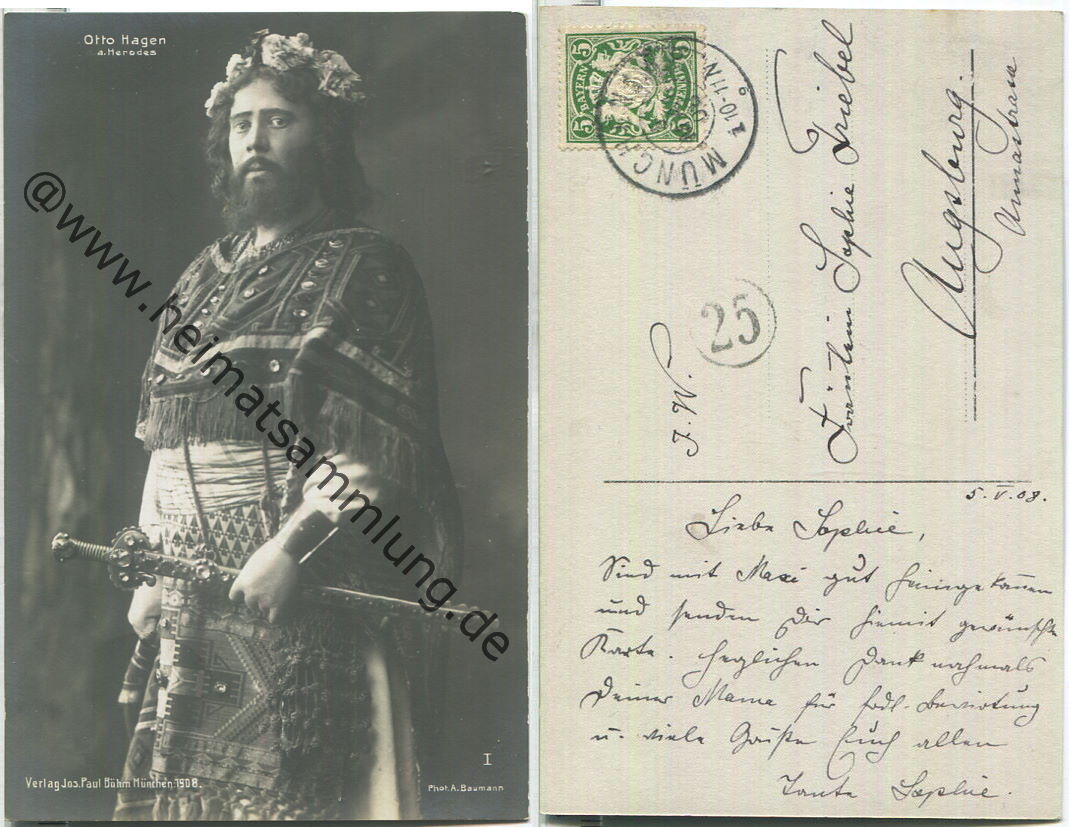 Otto Hagen
a. Herodes
@www.heimatsammlung.de
I
Verlag Jos. Paul Böhm München 1908.
Phot. A. Baumann
5 5
BAYERN
5 5
MÜNCH
10-11
Fräulein Sophie Friebel
Augsburg.
Annastrasse
25
F. W.
5. V. 08.
Liebe Sophie,
Sind mit Maxi gut heimgekommen
und senden Dir hiemit gewünschte
Karte. Herzlichen Dank nochmals
Deiner Mama für frdl. Bewirtung
u. viele Grüße Euch allen
Tante Sophie.